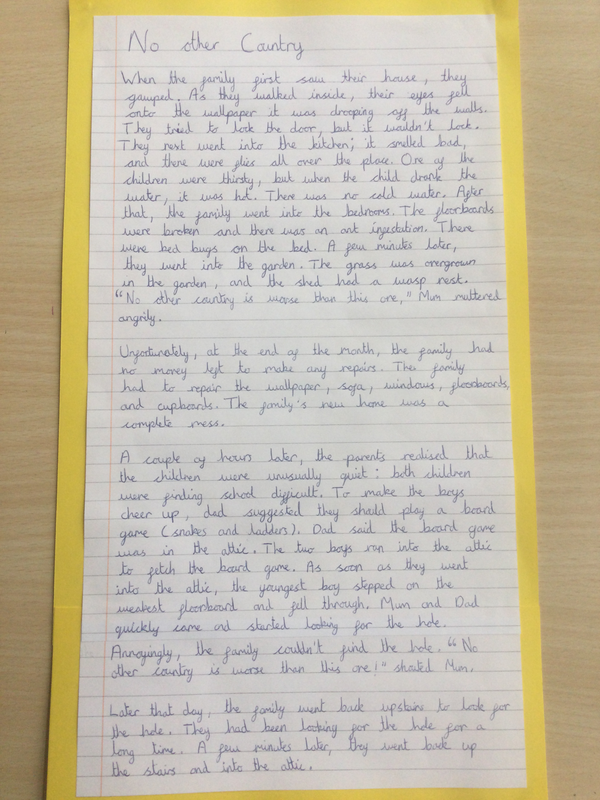 No other Country
When the family first saw their house, they
gawped. As they walked inside, their eyes fell
onto the wallpaper it was drooping off the walls.
They tried to lock the door, but it wouldn't lock.
They next went into the kitchen; it smelled bad,
and there were flies all over the place. One of the
children were thirsty, but when the child drank the
water, it was hot. There was no cold water. After
that, the family went into the bedrooms. The floorboards
were broken and there was an ant infestation. There
were bed bugs on the bed. A few minutes later,
they went into the garden. The grass was overgrown
in the garden, and the shed had a wasp nest.
"No other country is worse than this one," Mum muttered
angrily.
Unfortunately, at the end of the month, the family had
no money left to make any repairs. The family
had to repair the wallpaper, sofa, windows, floorboards,
and cupboards. The family's new home was a
complete mess.
A couple of hours later, the parents realised that
the children were unusually quiet: both children
were finding school difficult. To make the boys
cheer up, dad suggested they should play a board
game (snakes and ladders). Dad said the board game
was in the attic. The two boys ran into the attic
to fetch the board game. As soon as they went
into the attic, the youngest boy stepped on the
weakest floorboard and fell through. Mum and Dad
quickly came and started looking for the hole.
Annoyingly, the family couldn't find the hole. "No
other country is worse than this one!" shouted Mum.
Later that day, the family went back upstairs to look for
the hole. They had been looking for the hole for a
long time. A few minutes later, they went back up
the stairs and into the attic.